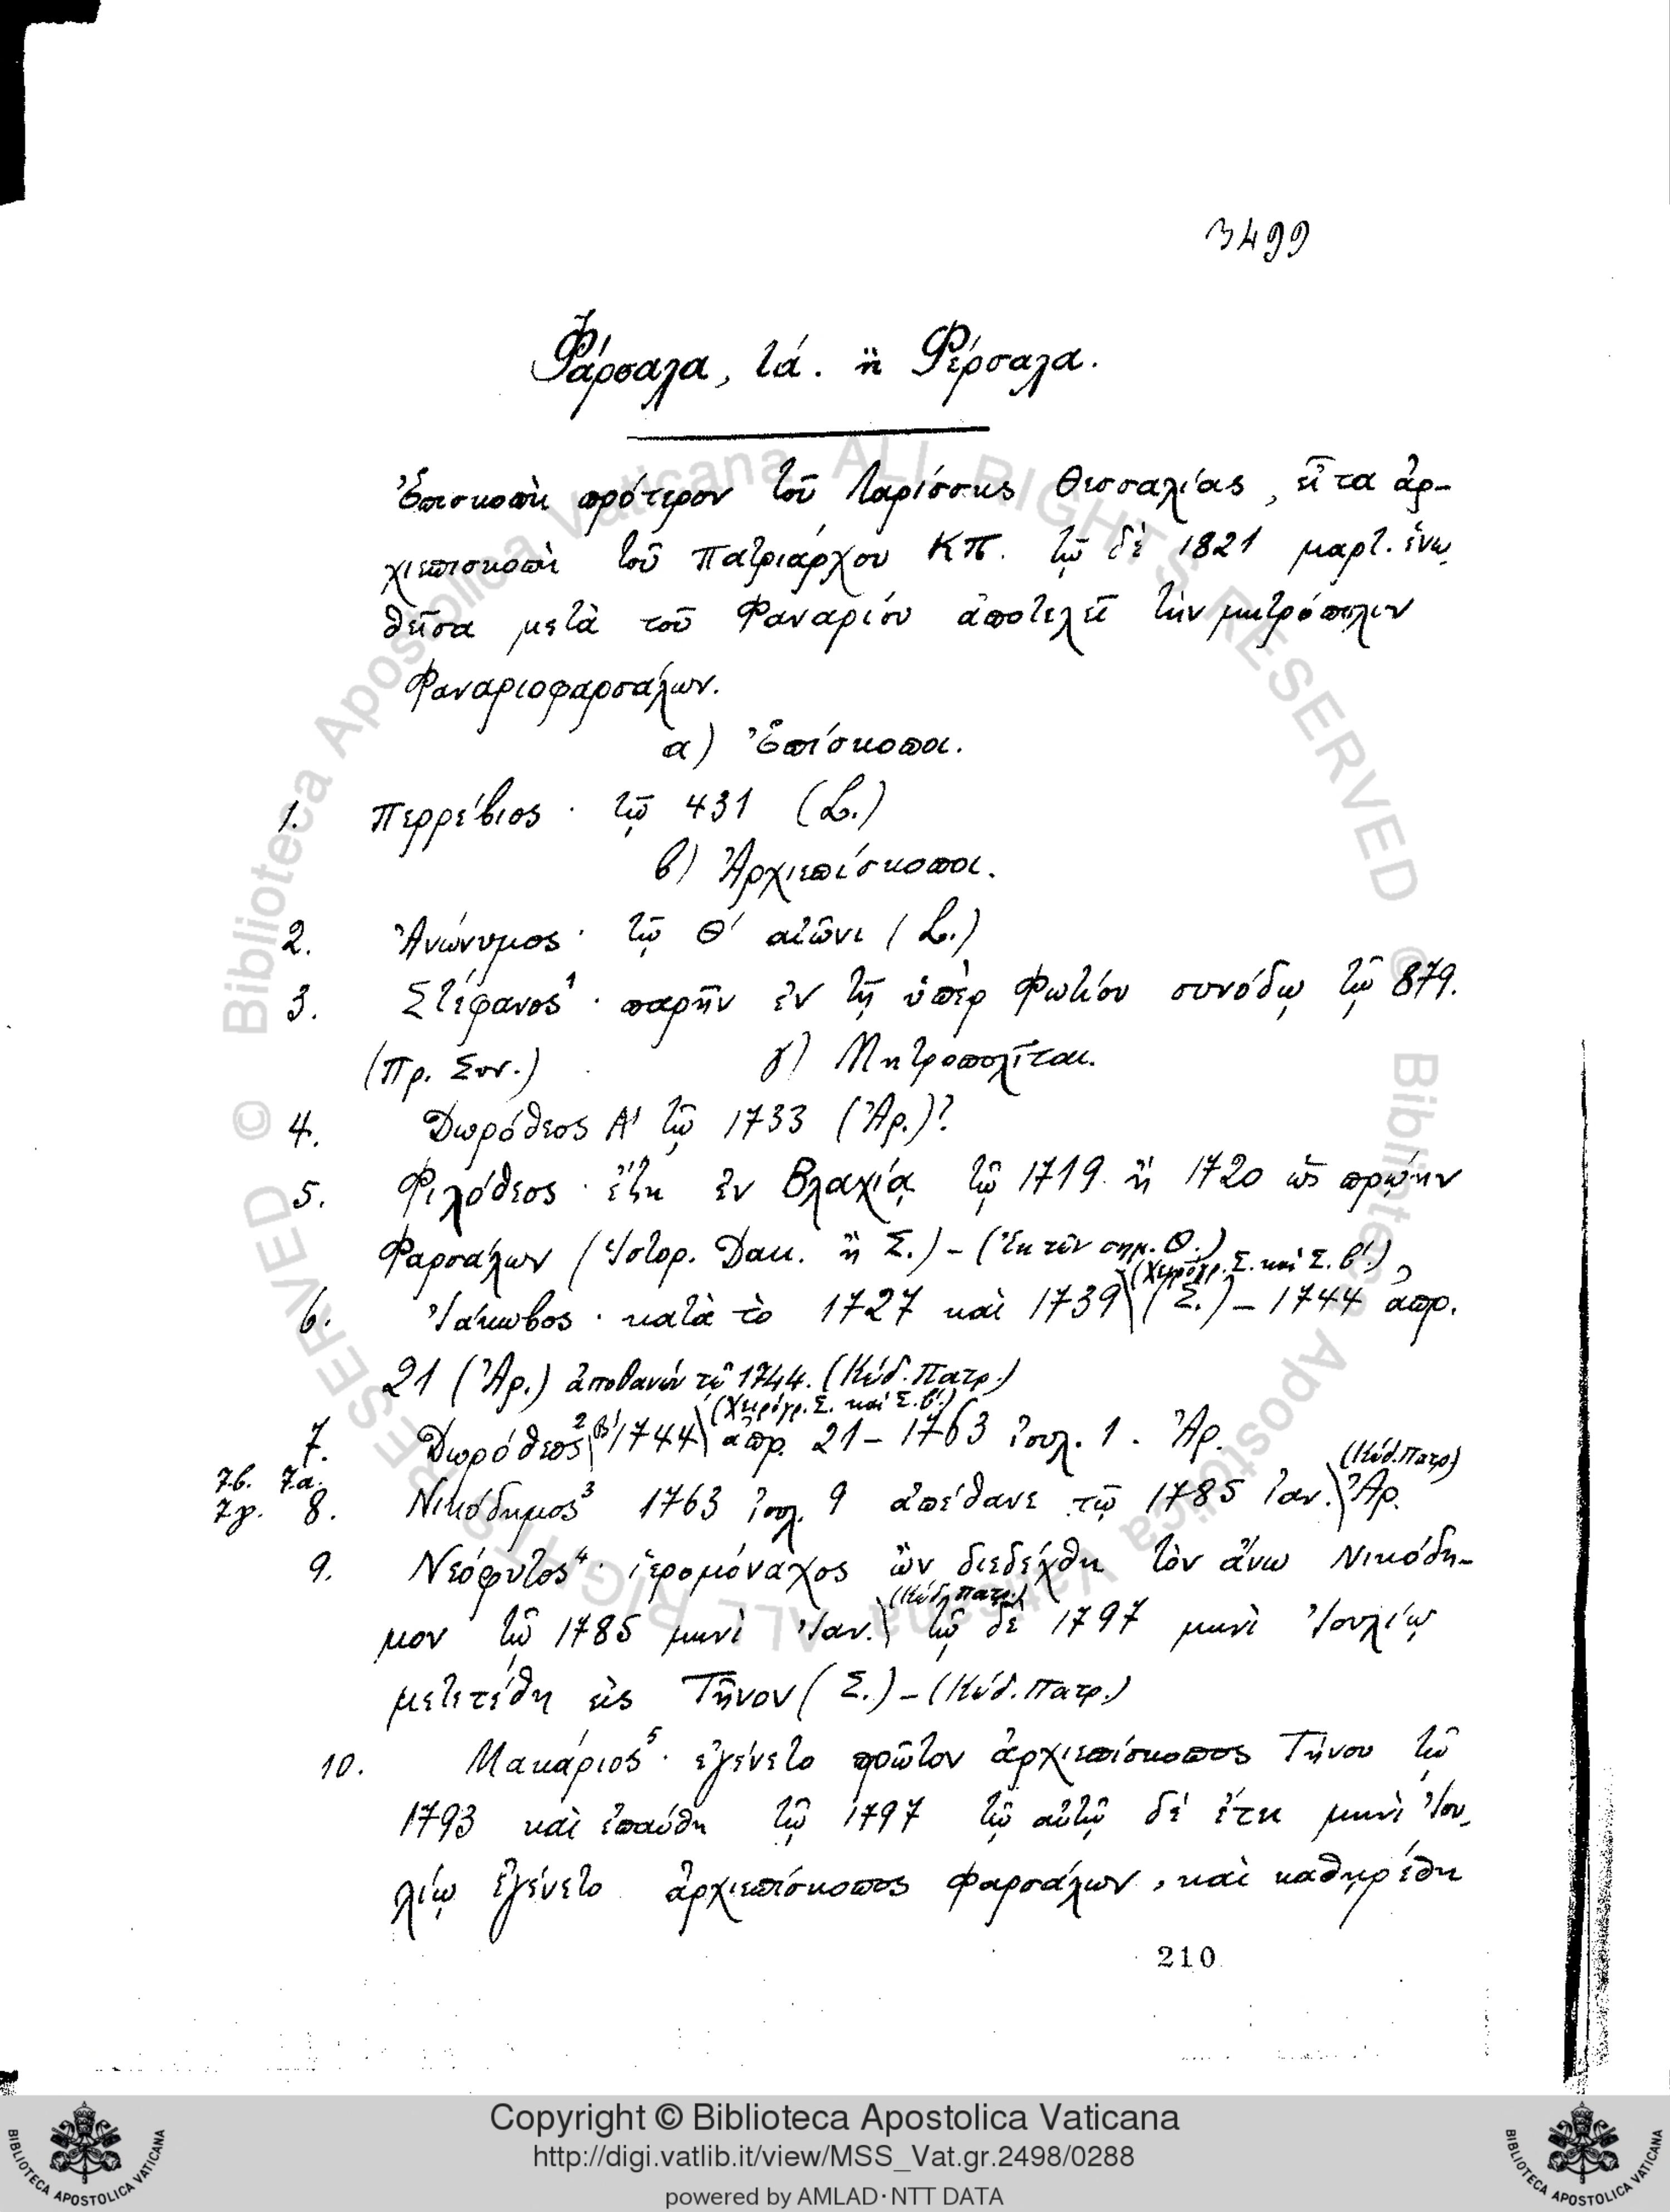 3499
Φάρσαλα, τά. ἢ Φέρσαλα.
Ἐπισκοπὴ πρότερον τοῦ Λαρίσσης Θεσσαλίας, εἶτα ἀρ-
χιεπισκοπὴ τοῦ Πατριάρχου ΚΠ. τῷ δὲ 1821 μαρτ. ἑνω
θεῖσα μετὰ τοῦ Φαναρίου ἀποτελεῖ τὴν μητρόπολιν
Φαναριοφαρσάλων.
α) Ἐπίσκοποι.
1. Περρέβιος · τῷ 431 (L.)
β) Ἀρχιεπίσκοποι.
2. Ἀνώνυμος · τῷ Θ' αἰῶνι (L.)
3. Στέφανος¹ · παρῆν ἐν τῇ ὑπὲρ Φωτίου συνόδῳ τῷ 879.
(Πρ. Συν.) γ) Μητροπολῖται.
4. Δωρόθεος Α' τῷ 1733 (Ἀρ.)?
5. Φιλόθεος · ἔζη ἐν Βλαχίᾳ τῷ 1719 ἢ 1720 ὡς πρώην
Φαρσάλων (Ἱστορ. Δακ. ἢ Σ.) – (Ἐκ τῶν σημ. Θ.)
(Χειρόγρ. Σ. καὶ Σ. β'.)
6. Ἰάκωβος · κατὰ τὸ 1727 καὶ 1739 (Σ.) – 1744 ἀπρ.
21 (Ἀρ.) ἀποθανών τῷ 1744. (Κώδ. Πατρ.)
(Χειρόγρ. Σ. καὶ Σ. β'.)
7. Δωρόθεος² Β' 1744 ἀπρ. 21 – 1763 ἰουλ. 1 . Ἀρ.
7β. 7α. (Κώδ. Πατρ)
7γ. 8. Νικόδημος³ 1763 ἰουλ. 9 ἀπέθανε τῷ 1785 ἰαν. Ἀρ.
9. Νεόφυτος⁴ · ἱερομόναχος ὢν διεδέχθη τὸν ἄνω Νικόδη-
(Κώδ. Πατρ.)
μον τῷ 1785 μηνὶ Ἰαν. τῷ δὲ 1797 μηνὶ Ἰουλίῳ
μετετέθη εἰς Τῆνον (Σ.) – (Κώδ. Πατρ.)
10. Μακάριος⁵ · ἐγένετο πρῶτον ἀρχιεπίσκοπος Τήνου τῷ
1793 καὶ ἐπαύθη τῷ 1797 τῷ αὐτῷ δὲ ἔτει μηνὶ Ἰου
λίῳ ἐγένετο ἀρχιεπίσκοπος Φαρσάλων, καὶ καθῃρέθη
210
© Biblioteca Apostolica Vaticana ALL RIGHTS RESERVED
© Biblioteca Apostolica Vaticana ALL RIGHTS RESERVED
BIBLIOTECA APOSTOLICA VATICANA
Copyright © Biblioteca Apostolica Vaticana
http://digi.vatlib.it/view/MSS_Vat.gr.2498/0288
powered by AMLAD·NTT DATA
BIBLIOTECA APOSTOLICA VATICANA